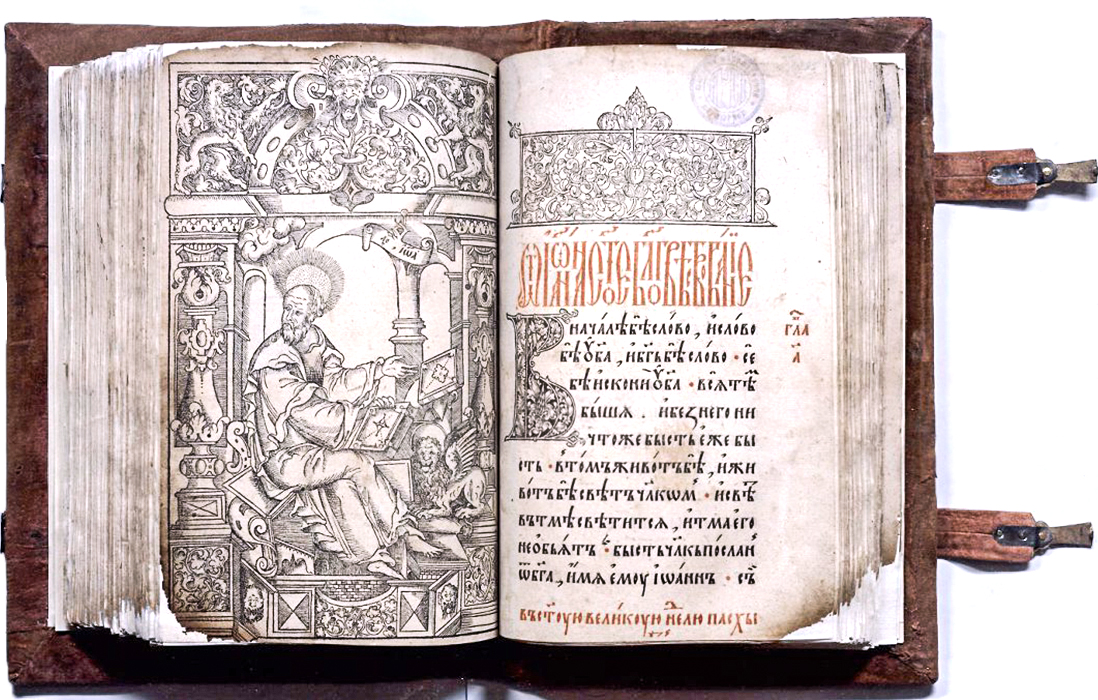 ѿ іѡанна ст҃ое бл҃говѣствованїе
В началѣ бѣ слово, и слово
бѣ ѿ бг҃а, и бг҃ъ бѣ слово • се
бѣ искони ѿ бг҃а • всѧ тѣм
бышѧ. и без него ни
что же бысть еже бы
сть • в томъ живот бѣ, и жи
вотъ бѣ свѣтъ чл҃кѡм • и свѣ
въ тмѣ свѣтитсѧ, и тма его
не обьѧтъ • бысть чл҃къ послан
ѿ бг҃а, имѧ ємоу іѡаннъ • съ
гла
а҃
въ ст҃оую великоую нє҃лю пасхы